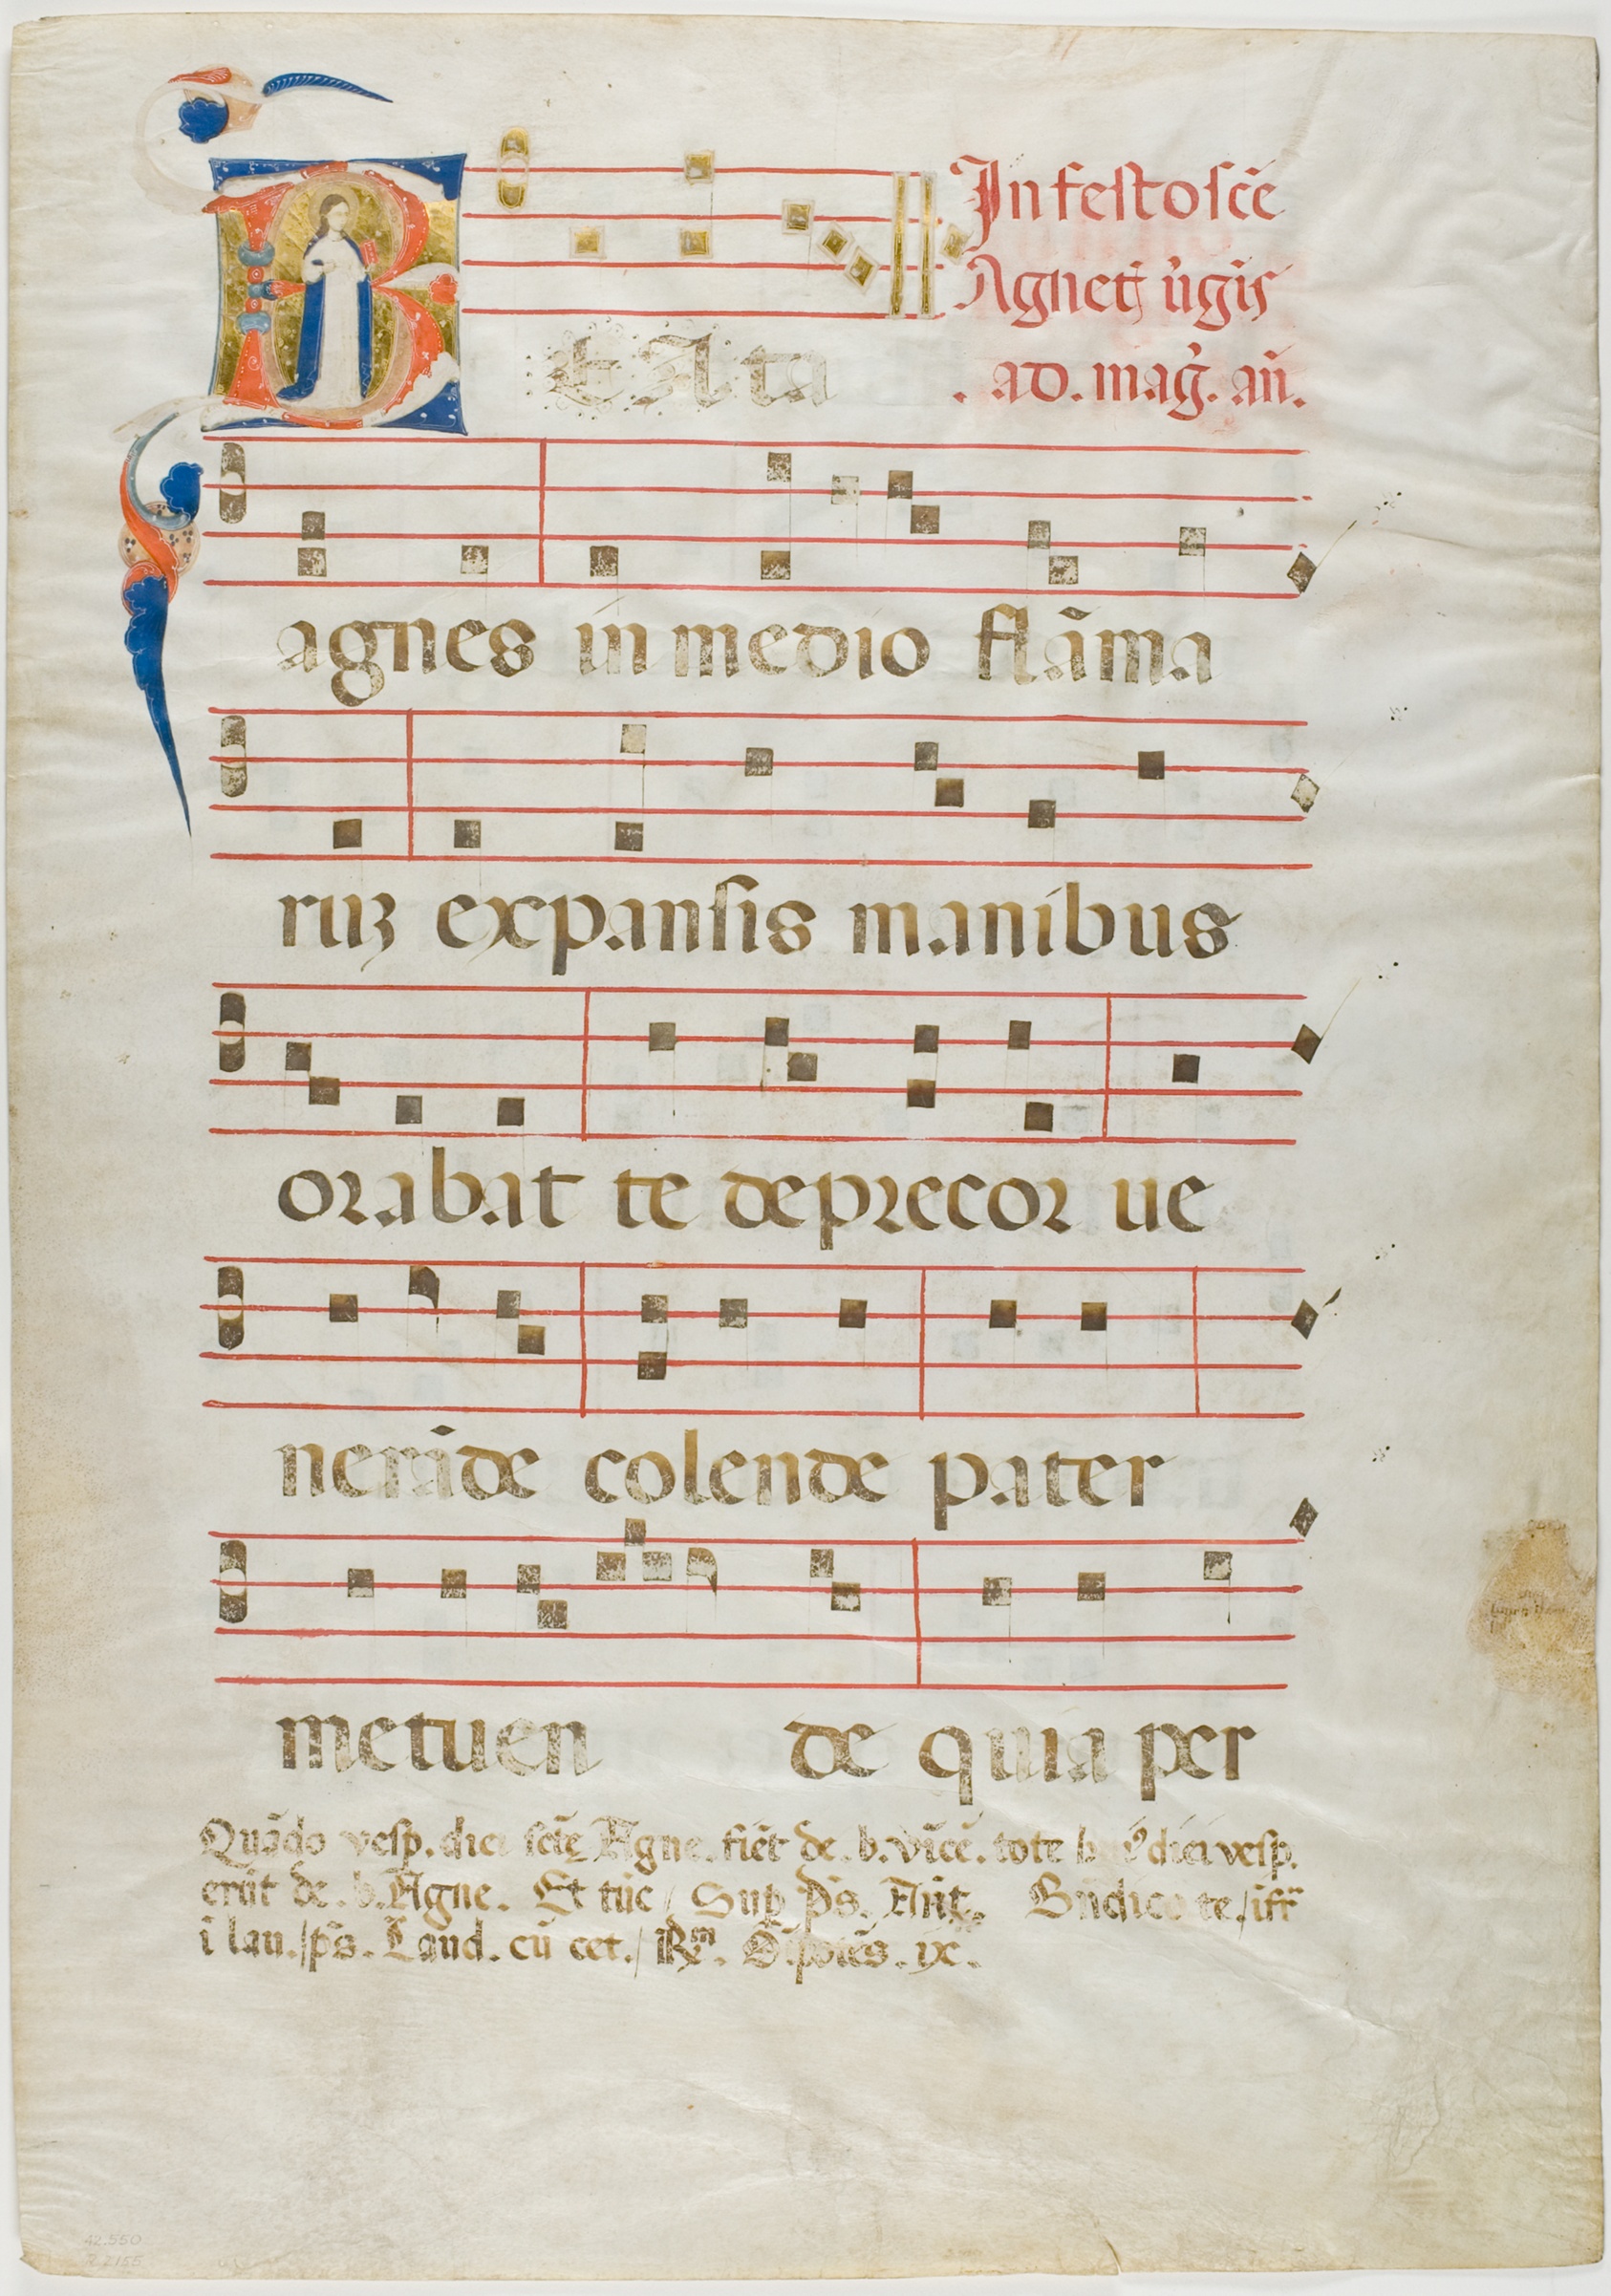 In festo scē
BEAta
Agnetis v̓gis
. ad. mag̓. an̄.
agnes in medio flāma
ruꝫ expansis manibus
orabat te deprecor ue
nerāde colende pater
metuen de quia per
Quādo vesp. diei sctę Agne. fiēt de. b. vīcē. tote diei vesp.
erūt de. b. Agne. Et tūc / Sup p̄s. Ant. te /
i lau. / ps. Laud. cū cet. / ix.
42.550
R2155